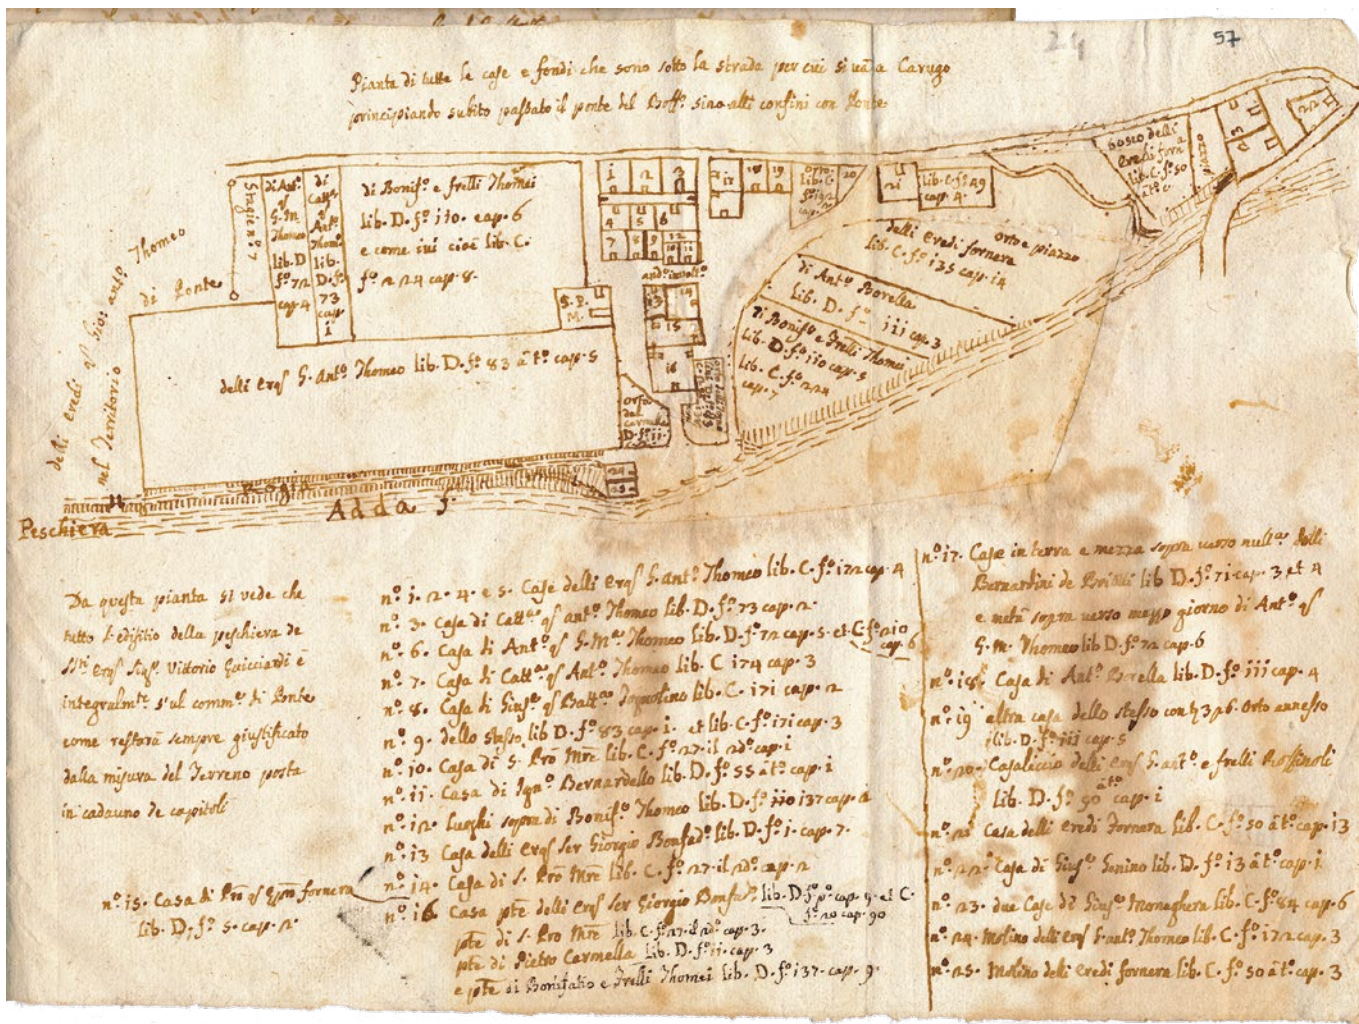 57
Pianta di tutte le case e fondi che sono sotto la strada per cui si và a Carugo
principiando subito passato il ponte del Boff.º sino alli confini con Ponte
delli eredi qᵐ Gio: anto Thomeo
nel Territorio di Ponte
Stagion.º 7
di Ant.º
qᵐ
G. M.
Thomeo
lib. D
f.º 72
cap. 4
di
Catt.ª
qᵐ
Ant.º
Thom.º
lib.
D. f.º
73
cap.
i
di Bonif.º e frelli Thomei
lib. D. f.º 110. cap. 6
e come ivi cioè lib. C.
f.º 224 cap. 8.
S. P.
M.
delli erqᵐ S. Ant.º Thomeo lib. D. f.º 83 à t.º cap. 5
1 2 3
4 5 6
7 8 9 12
10 11
13 14
15
16
17 18 19
Orto
lib. C.
20
21
lib. C. f.º 49
cap. 4.
bosco delli
eredi forn.ª
lib. C. f.º 50
à t.º
piazzo
23
22
orto e piazzo
delli eredi fornera
lib. C. f.º 135 cap. 14
di Ant.º Borella
lib. D. f.º iii cap. 3
di Bonif.º e Frelli Thomei
lib. D. f.º iio cap. 5
lib. C. f.º 224
cap. 7
Orto
del
D. f.º ii.
24
25
Rogia
Adda f.
Peschiera
Da questa pianta si vede che
tutto l'edifitio della peschiera de
SSri erqᵐ Sigr. Vittorio Guicciardi è
integralmte s'ul comm.e di Ponte
come restarà sempre giustificato
dalla misura del Terreno posta
in cadauno de capitoli
nº. 15. Casa di Pro qᵐ Gpro fornera
lib. D. f.º 5. cap. 2.
nº. 1. 2. 4. e 5. Case delli erqᵐ S. Ant.º Thomeo lib. C. f.º 172 cap. 4
nº. 3. Casa di Catt.ª qᵐ Ant.º Thomeo lib. D. f.º 73 cap. 2.
nº. 6. Casa di Ant.º qᵐ G. M.ª Thomeo lib. D. f.º 72 cap. 5. et C. f.º 210
cap. 6
nº. 7. Casa di Catt.ª qᵐ Ant.º Thomeo lib. C 174 cap. 3
nº. 8. Casa di Gius.e qᵐ Batt.ª lib. C. 171 cap. 2
nº. 9. dello stesso lib D. f.º 83 cap. i. et lib. C. f.º 171 cap. 3
nº. 10. Casa di S. Pro Mre lib. C. f.º 27. il 2dº. cap. i
nº. 11. Casa di Ign.º Bernardello lib. D. f.º 55 à t.º cap. i
nº. 12. Luoghi sopra di Bonif.º Thomeo lib. D. f.º 137 cap. 2
nº. 13 Casa delli erqᵐ ser Giorgio Bonfad.º lib. D. f.º i. cap. 7.
nº. 14. Casa di S. Pro Mre lib. C. f.º 27. il 2dº. cap. 2
nº. 16 Casa pte delli erqᵐ ser Giorgio Bonfad.º lib. D. f.º pº. cap. 9. et C.
f.º 20 cap. 90
pte di S. Pro Mre lib. C. f.º 27. il 2dº. cap. 3.
pte di Pietro Carmella lib. D. f.º ii. cap. 3
e pte di Bonifatio e Frelli Thomei lib. D. f.º 137. cap. 9.
nº. 17. Case in terra e mezza sopra verso null'ora delli
Bernardini de lib D. f.º 71. cap. 3 et 4
e metà sopra verso mezzo giorno di Ant.º qᵐ
G. M. Thomeo lib D. f.º 72 cap. 6
nº. 18. Casa di Ant.º Borella lib. D. f.º iii cap. 4
nº. 19 altra casa dello stesso con orto annesso
lib. D. f.º iii cap. 5
nº. 20. Casaliccio delli erqᵐ S. ant.º e frelli
lib. D. f.º 90 à t.º cap. i
nº. 21 Casa delli eredi Fornera lib. C. f.º 50 à t.º cap. 13
nº. 22. Casa di Gius.e lib. D. f.º 13 à t.º cap. i
nº. 23. due Case di Gius.e Moneghera lib. C. f.º 84 cap. 6
nº. 24. Molino delli erqᵐ S. ant.º Thomeo lib. C. f.º 172 cap. 3
nº. 25. Molino delli eredi fornera lib. C. f.º 50 à t.º cap. 3